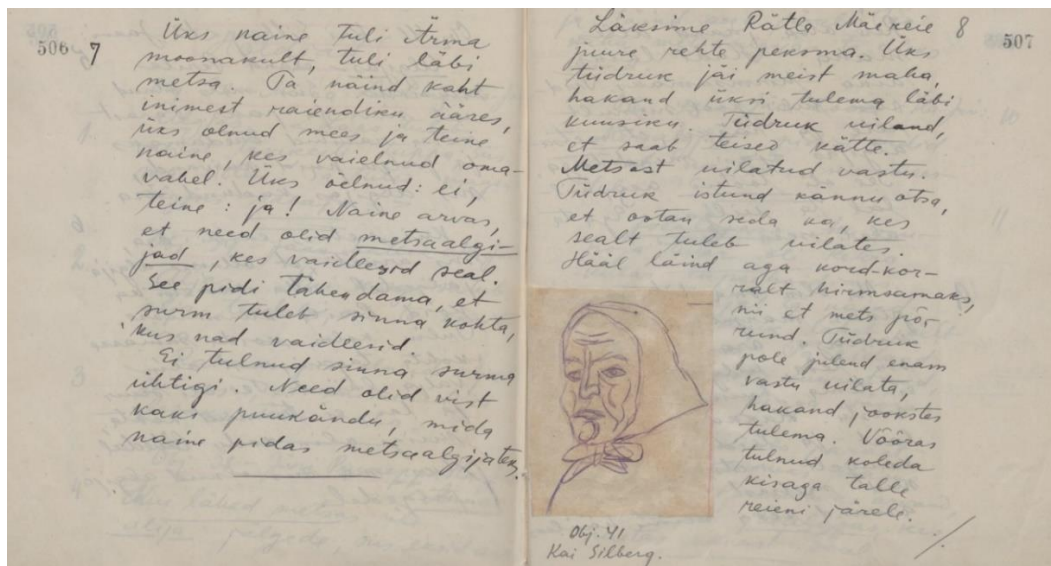 506 7
Üks naine tuli Ärma
moonakult, tuli läbi
metsa. Ta näind kaht
inimest raiendiku ääres,
üks olnud mees ja teine
naine, kes vaielnud oma-
vahel. Üks öelnud: ei,
teine: ja! Naine arvas,
et need olid metsaalgi-
jad, kes vaidlesid seal.
See pidi tähendama, et
surm tuleb sinna kohta,
kus nad vaidlesid.
Ei tulnud sinna surma
ühtigi. Need olid vist
kaks puukändu, mida
naine pidas metsaalgijateks.
8 507
Läksime Rätla Mäereie
juure rehte peksma. Üks
tüdruk jäi meist maha,
hakand üksi tulema läbi
kuusiku. Tüdruk uiland,
et saab teised kätte.
Metsast uilatud vastu.
Tüdruk istund kännu otsa,
et ootan seda ka, kes
sealt tuleb uilates.
Hääl läind aga kord-kor-
ralt hirmsamaks,
nii et mets põr
rund. Tüdruk
pole julend enam
vastu uilata,
hakand jookstes
tulema. Võõras
tulnud koleda
kisaga talle
reieni järele.
Obj. 41
Kai Silberg.